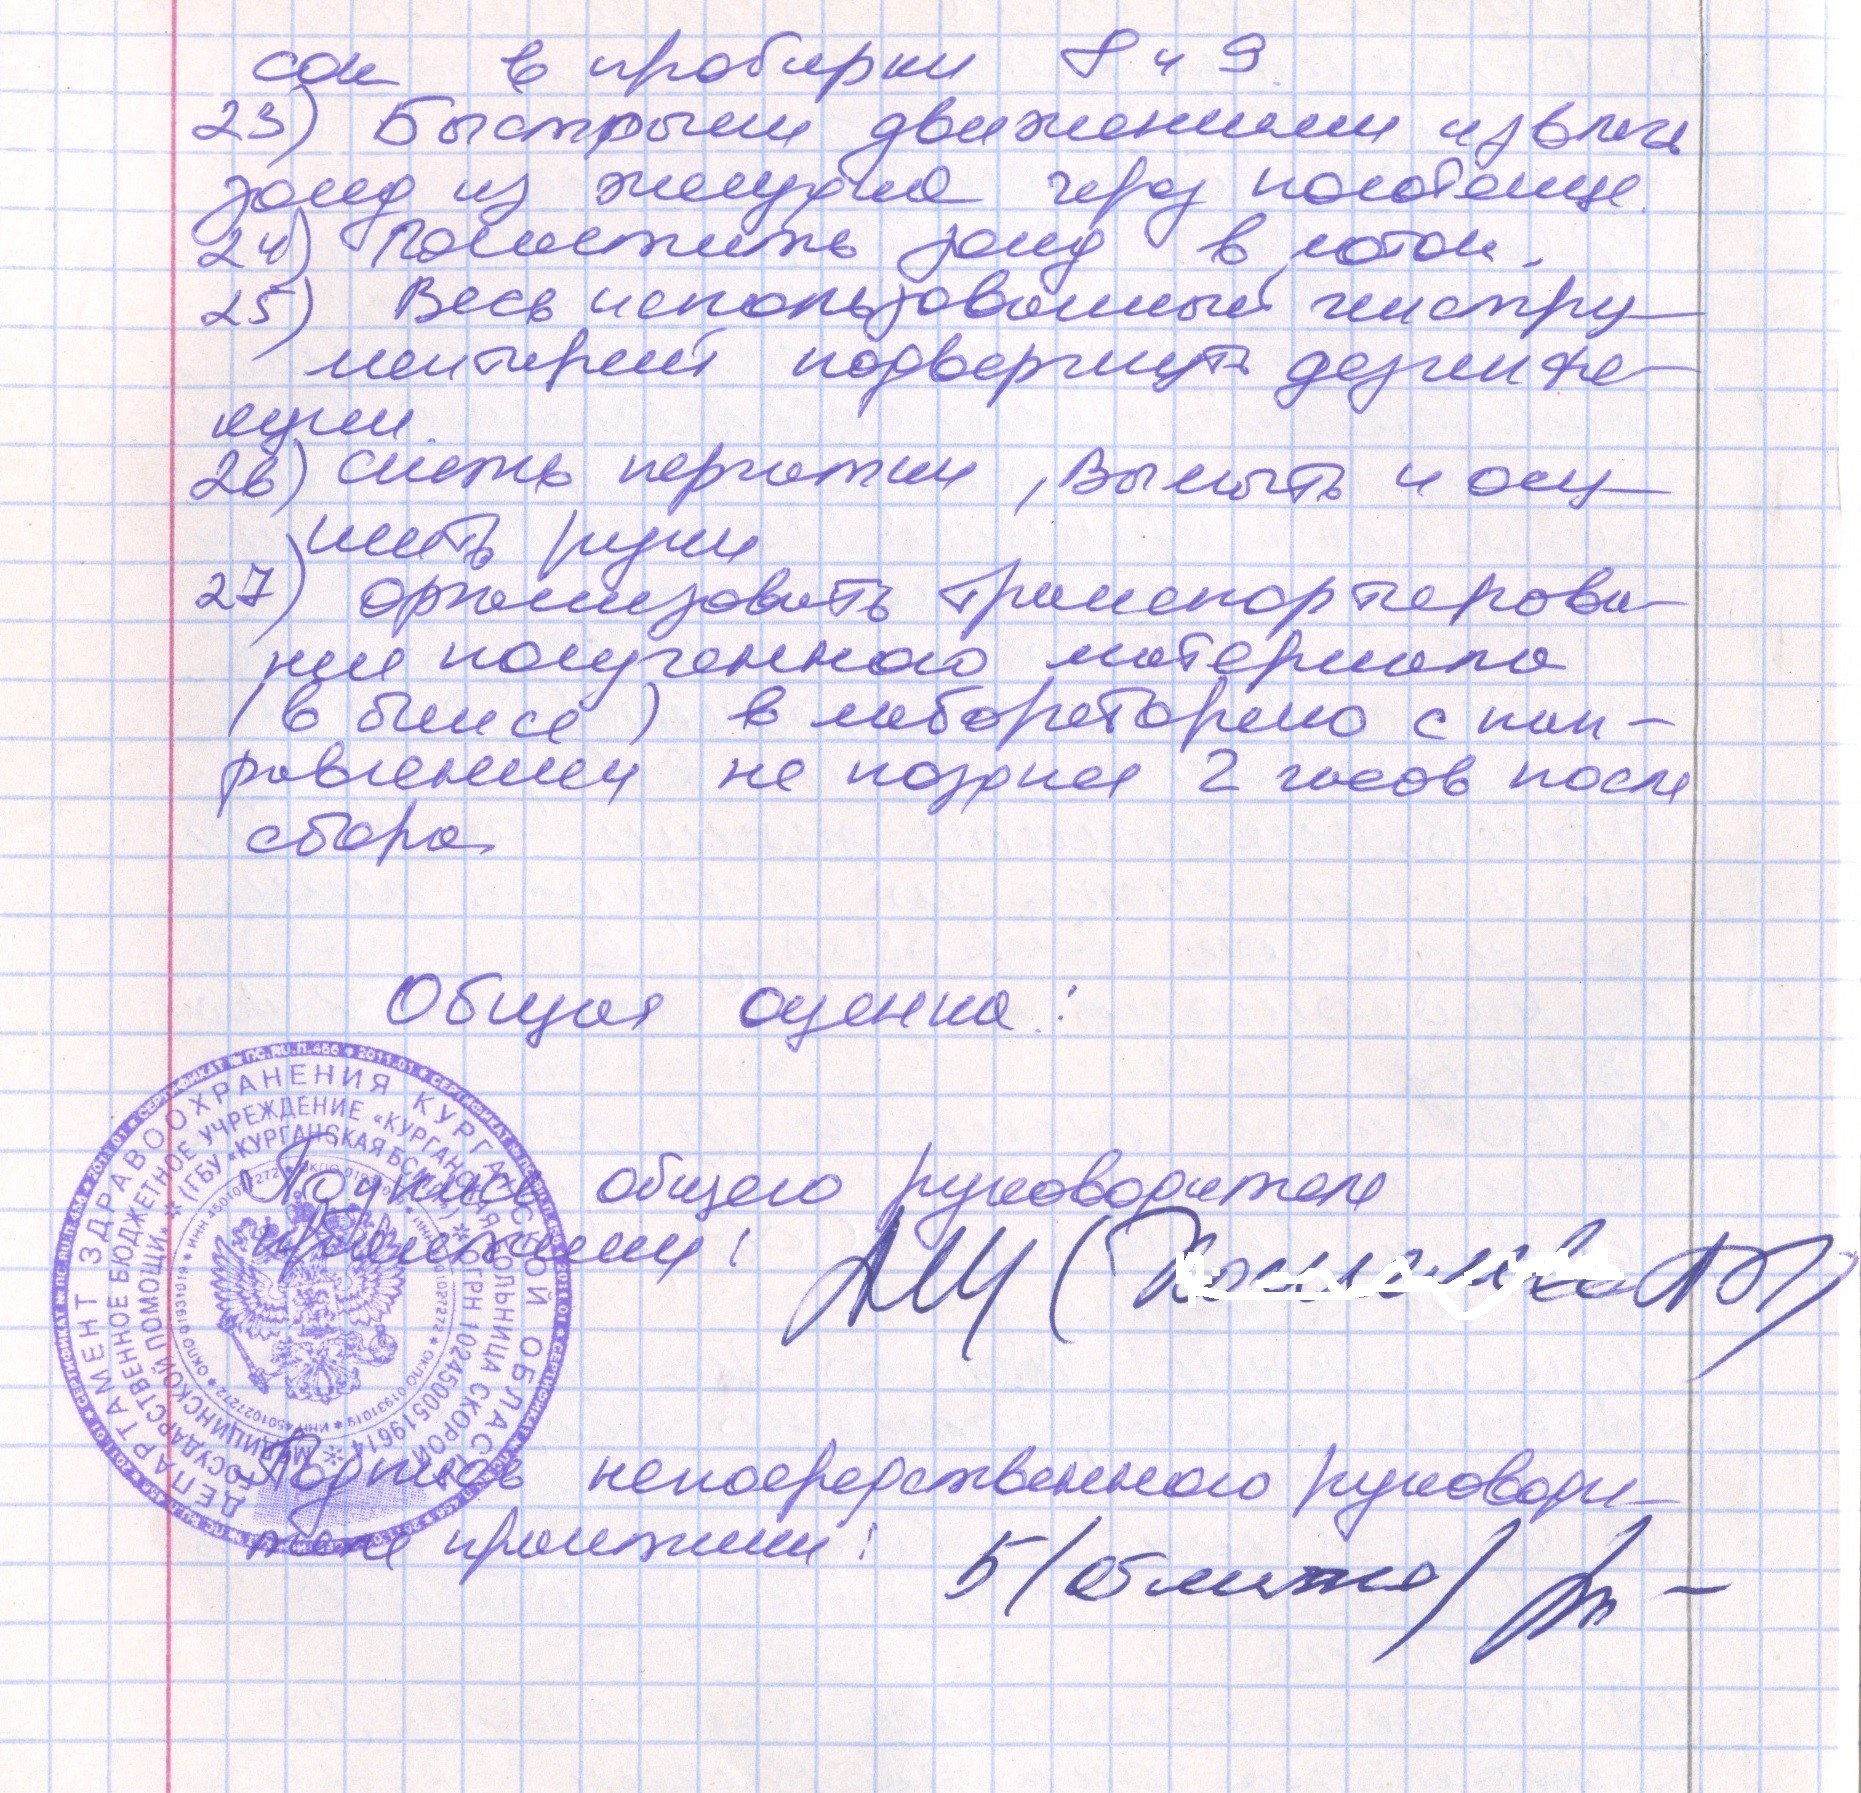 сок в пробирки 8 и 9.
23) Быстрыми движениями извлечь
зонд из желудка через полотенце.
24) Положить зонд в лоток.
25) Весь использованный инстру-
ментарий подвергнуть дезинфе-
кции.
26) снять перчатки, вымыть и осу-
шить руки
27) организовать транспортирова-
ние полученного материала
(в биксе) в лабораторию с нап-
равлением не позднее 2 часов после
сбора.
Общая оценка:
Подпись общего руководителя
практики:
Подпись непосредственного руководи-
теля практики:
5/отлично/
ДЕПАРТАМЕНТ ЗДРАВООХРАНЕНИЯ КУРГАНСКОЙ ОБЛАСТИ
ГОСУДАРСТВЕННОЕ БЮДЖЕТНОЕ УЧРЕЖДЕНИЕ «КУРГАНСКАЯ БОЛЬНИЦА СКОРОЙ
МЕДИЦИНСКОЙ ПОМОЩИ» * (ГБУ «КУРГАНСКАЯ БСМП») * ОГРН 1024500519614 *
* ИНН 4501027272 * ОКПО 01931019
* СЕРТИФИКАТ № ПС.RU.П.456 * 2011.01